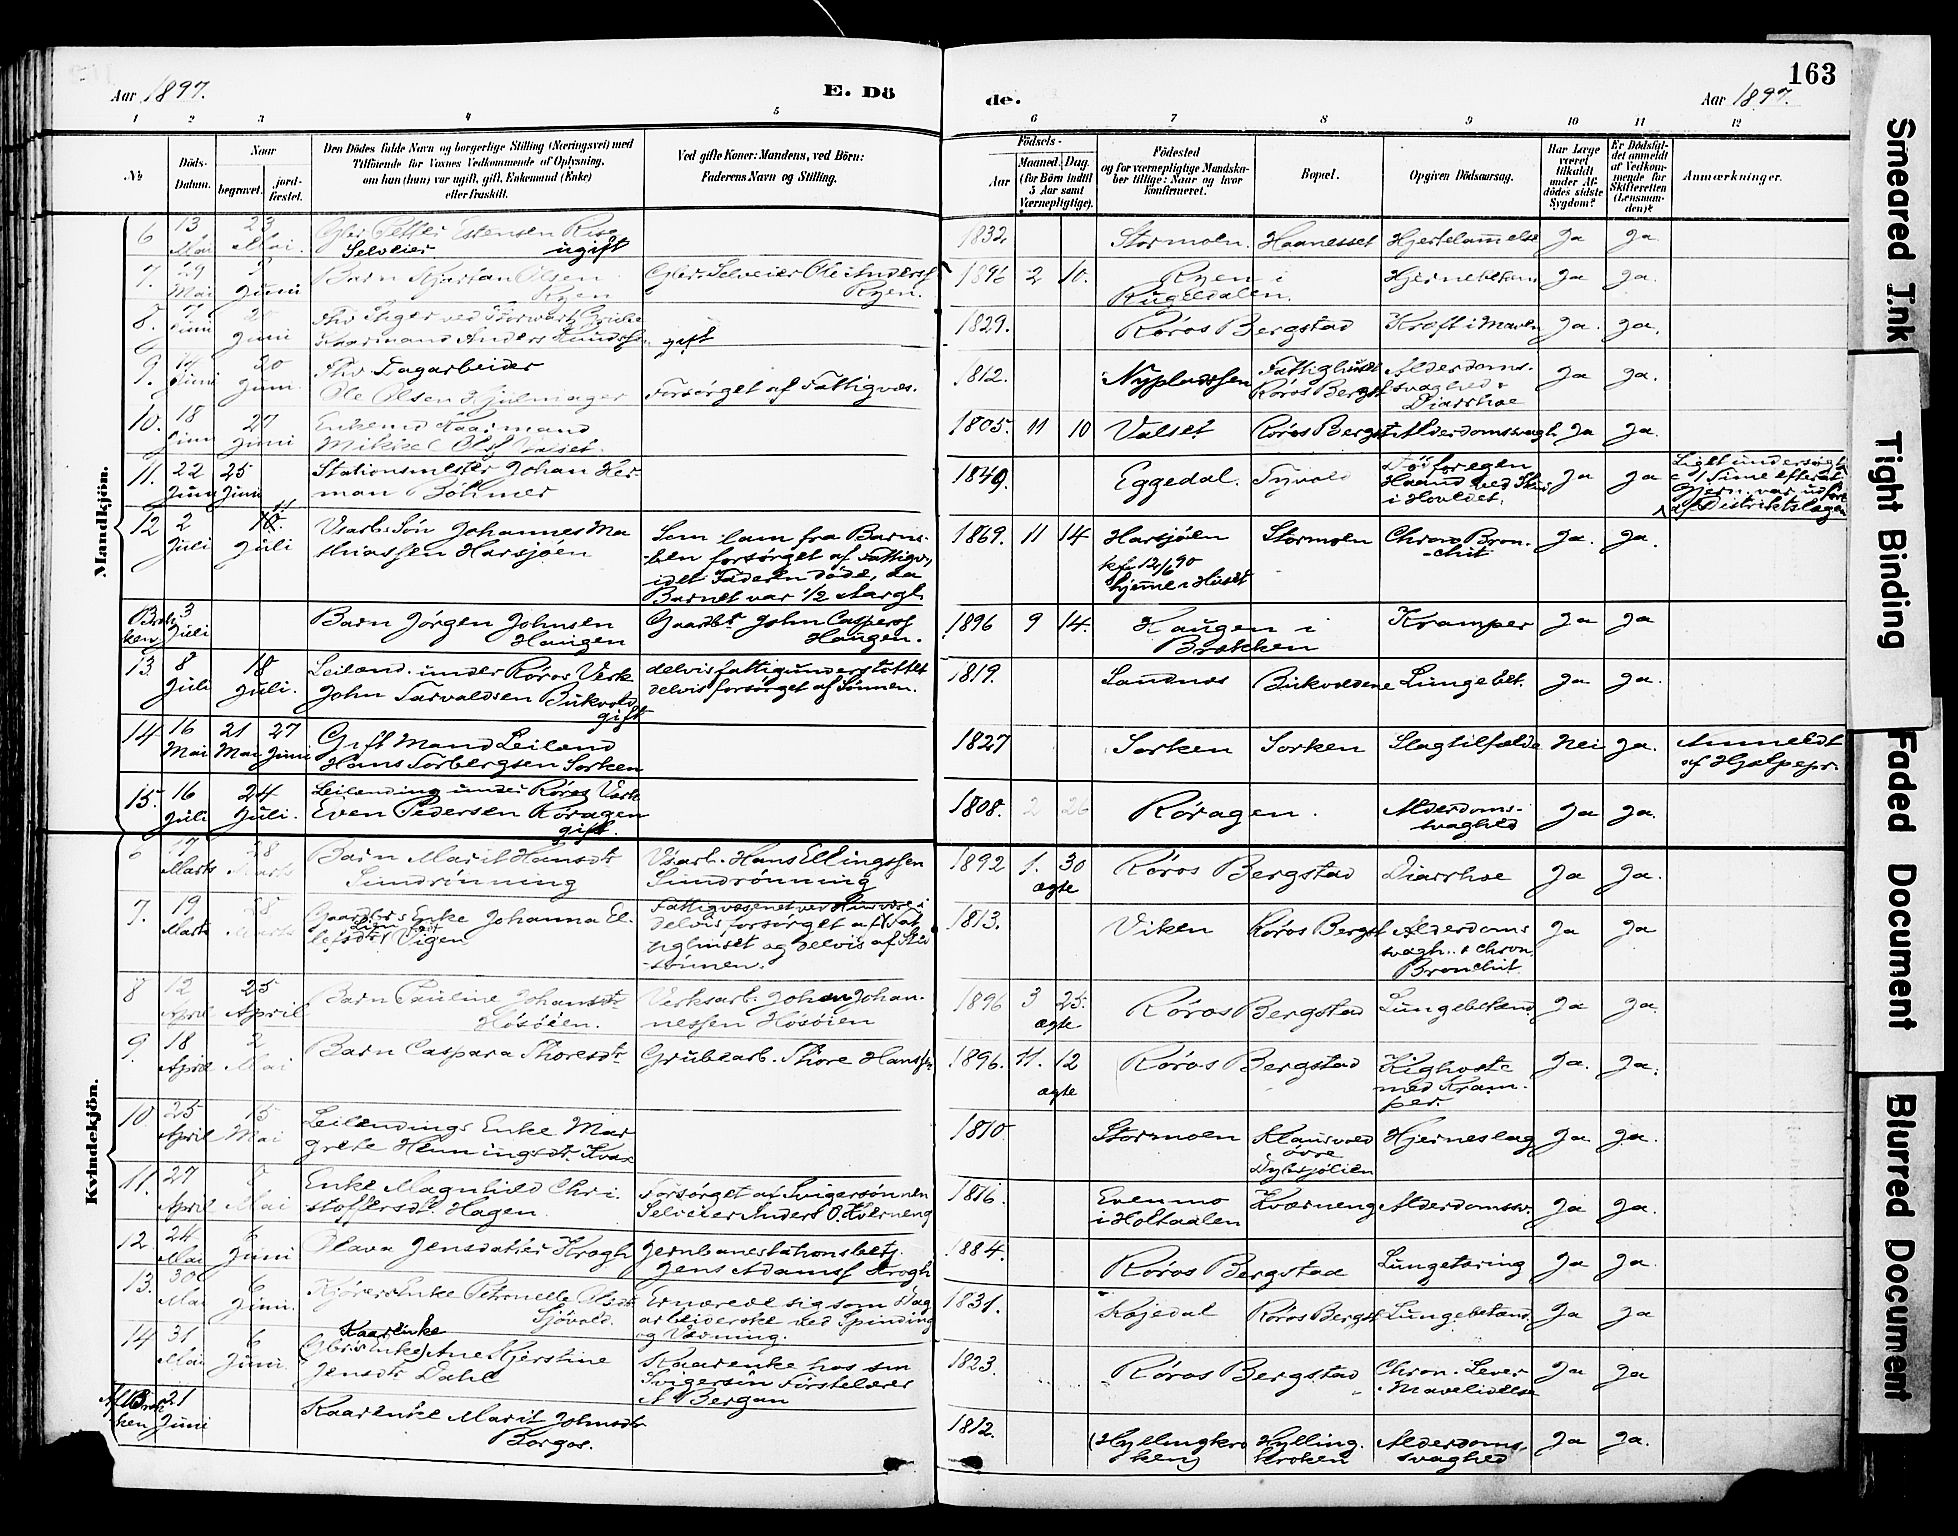 163
Aar 1897.
E. Dö
de.
Aar 1897.
1 2 3 4 5 6 7 8 9 10 11 12
No
Döds-
Datum.
Naar
begravet.
jord-
fæstet.
Den Dödes fulde Navn og borgerlige Stilling (Næringsvei) med
Tilföiende for Voxnes Vedkommende af Oplysning,
om han (hun) var ugift, gift, Enkemand (Enke)
eller fraskilt.
Ved gifte Koner: Mandens, ved Börn:
Faderens Navn og Stilling.
Födsels-
Aar
Maaned. Dag.
(for Börn indtil
5 Aar samt
Værnepligtige).
Födested
og for værnepligtige Mandska-
ber tillige: Naar og hvor
konfirmeret.
Bopæl.
Opgiven Dödsaarsag.
Har Læge
været
tilkaldt
under Af-
dödes sidste
Sygdom?
Er Dödsfal-
det anmeldt
af Vedkom-
mende for
Skifteretten
(Lensman-
den)?
Anmærkninger.
Mandkjön.
6 13 Mai 23 Mai. Petter Estensen Risg
Selveier ugift
1832. Stormoen. Haanesset Hjertelammelse Ja Ja.
7. 29 Mai Juni Barn Kjartan Olsen
Ryen
Gbr. Selveier Ole Anderss
Ryen.
1896 2 10. Ryen i
Rugeldalen.
Ja Ja.
8. Juni Juni
Kaarmand Anders Knuds
gift
1829. Röros Bergstad Kræft i Maven Ja. Ja.
9. 14 Juni 20 Juni Fhv Dagarbeider
Ole Olsen Hjulmager
Forsörget af Fattigvæs.
1812. Fattighuset
Röros Bergst
Alderdoms-
svaghed &
Diarrhoe
Ja Ja.
10. 18 Juni 27 Juni Enkemd Kaarmand
Mikkel Olss Valset.
1805. 11 10 Valset Röros Bergst Alderdomssvagh Ja Ja.
11. 22 Juni 25 Juni Stationsmester Johan Her-
man Böhmer
1849. Eggedal. Död for egen
Haand ved Skud
i Hovedet.
Ja Ja
12 2 Juli Juli Vsarb. Sön Johannes Ma
thiassen Harsjöen
Som lam fra Barns-
ben forsörget af Fattigv,
idet Faderen döde, da
Barnet var 1/2 Aargl.
1869. 11 14 Harsjöen
kf. 12/6 90
hjemme i Huset
Stormoen Chron Bron-
chit
Ja. Ja.
3 Juli Barn Jörgen Johnsen
Haugen
Gaardbr John Casperss
Haugen.
1896 9 14. Haugen i
Brækken
Kramper Ja Ja
13. 8 Juli 18 Juli. Leilænd. under Röros Verk
John Tarvaldsen Bukvold
gift
delvis fattigunderstöttet
delvis forsörget af Sönnen.
1819. Sandnæs Bukvoldene Lungebet. Ja Ja.
14 16 Mai 21 Mai 27 Juni Gift Mand Leilænd
Hans Torbergsen Sorken
1827 Sorken Sorken Slagtilfælde Nei Ja. Anmeldt
af Hjælpepr.
15. 16 Juli 24 Juli. Leilænding under Röros Verk
Even Pedersen Röragen
gift.
1808. 2 26 Röragen. Alderdoms-
svaghed
Ja Ja.
Kvindekjön.
Marts 28 Marts Barn Marit Hansdtr
Sundrönning
Vsarb. Hans Ellingssen
Sundrönning
1892 1. 30
ægte
Röros Bergstad Diarrhoe Ja Ja.
7. 19 Marts 28 Marts Gaardbrs Enke Johanna El-
lefsdtr Vigen
1813. Viken Röros Bergst Alderdoms
svagh. & chron
Bronchit
Ja Ja
8 12 April 25 April Barn Pauline Johansdtr
Hösöien.
Verksarb. Johan Johan-
nessen Hösöien
1896 3 25.
ægte
Röros Bergstad Lungebetænd Ja Ja.
9. 18 April 2 Mai Barn Caspara Thoresdtr
Grubearb. Thore Hanss
1896. 11. 12
ægte
Röros Bergstad Kighoste
med Kram-
per.
Ja. Ja.
10 25 April 15 Mai Leilændings Enke Mar
grete Henningsdtr.
1810 Stormoen
Hjerneslag Ja Ja.
11. 27 April Mai Enke Magnhild Chri-
stoffersdtr. Hagen.
Forsörget af Svigersönnen
Selveier Anders O. Kverneng
1816. Evenmo
i Holtaalen
Kværneng Alderdomssv. Ja Ja.
12 24 Mai 6 Juni Olava Jensdatter Krogh
Jernbanestationsbetj.
Jens Adamss Krogh
1884. Röros Bergstad Lungetæring Ja Ja.
13. 30 Mai 6 Juni. Kjörers Enke Petronelle Olsdtr
Sjövold.
Ernærede sig som Dag
arbeiderske ved Spinding
og Vævning.
1831. Kojedal Röros Bergst Lungebetænd. Ja Ja
14 31 Mai 6 Juni. Kaarenke
(Gbrs Enke) Ane Kjerstine
Jensdtr Dahl
Kaarenke hos sin
Svigersön Förstelærer
A Bergan
1823. Röros Bergstad Chron. Lever
Mavelidelse
Ja Ja
21 Juni Kaarenke Marit Johnsdtr
Borgos.
1812. Hylling-
kroken
Alderdoms-
svaghed
Ja Ja.
Smeared Ink
Tight Binding
Faded Document
Blurred Document